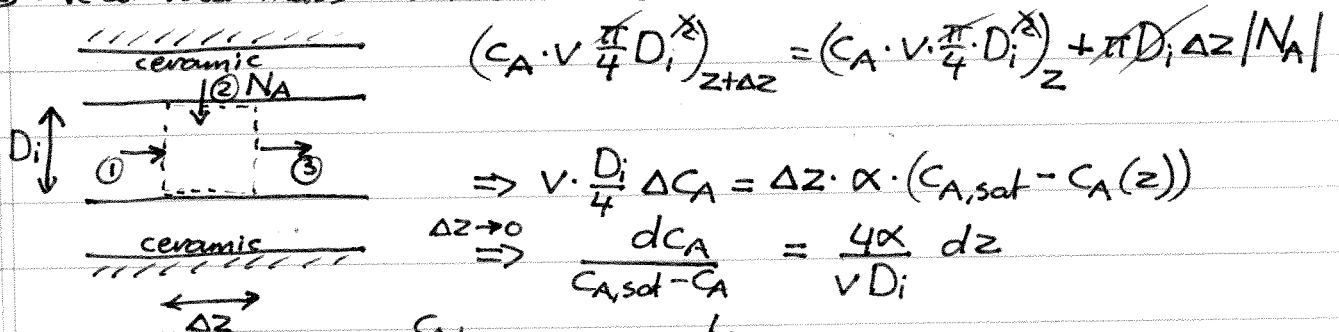 ceramic
② N_A
D_i
①
③
ceramic
Δz
(C_A · v π/4 D_i^2)_{z+Δz} = (C_A · v · π/4 · D_i^2)_z + π D_i Δz |N_A|
⇒ v · D_i/4 ΔC_A = Δz · α · (C_{A,sat} - C_A(z))
Δz→0
⇒ dC_A/(C_{A,sat} - C_A) = 4α/(v D_i) dz